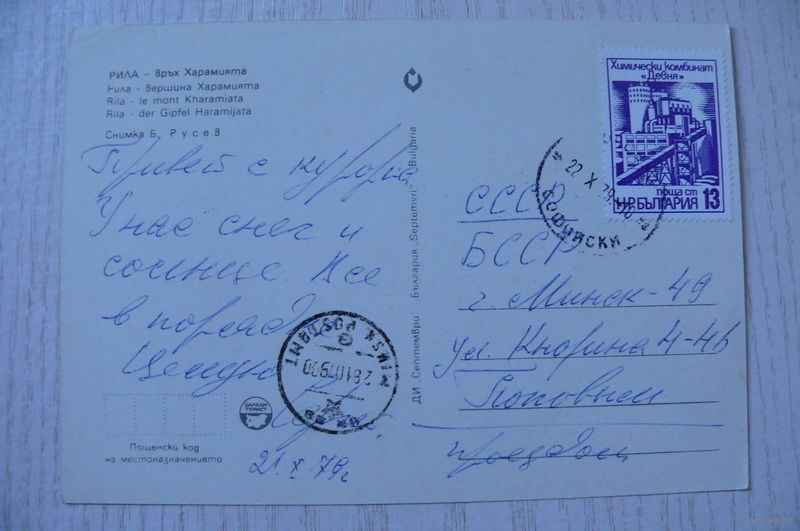 РИЛА – Връх Харамията
Рила - Вершина Харамията
Rila - le mont Kharamiata
Rila - der Gipfel Haramijata
Снимка Б. Русев
Привет с курорта.
У нас снег и
солнце. Все
в порядке.
Целую
21.X.79г
БАЛКАН
ТУРИСТ
Пощенски код
на местоназначението
MINSK POSTAMT
28107900
ДИ Септември България „Septemvri“ Bulgaria
Химически комбинат
«Девня»
поща ст
НР БЪЛГАРИЯ 13
22 X 79
СССР
БССР
г. Минск-49
ул. Кнорина 4-46